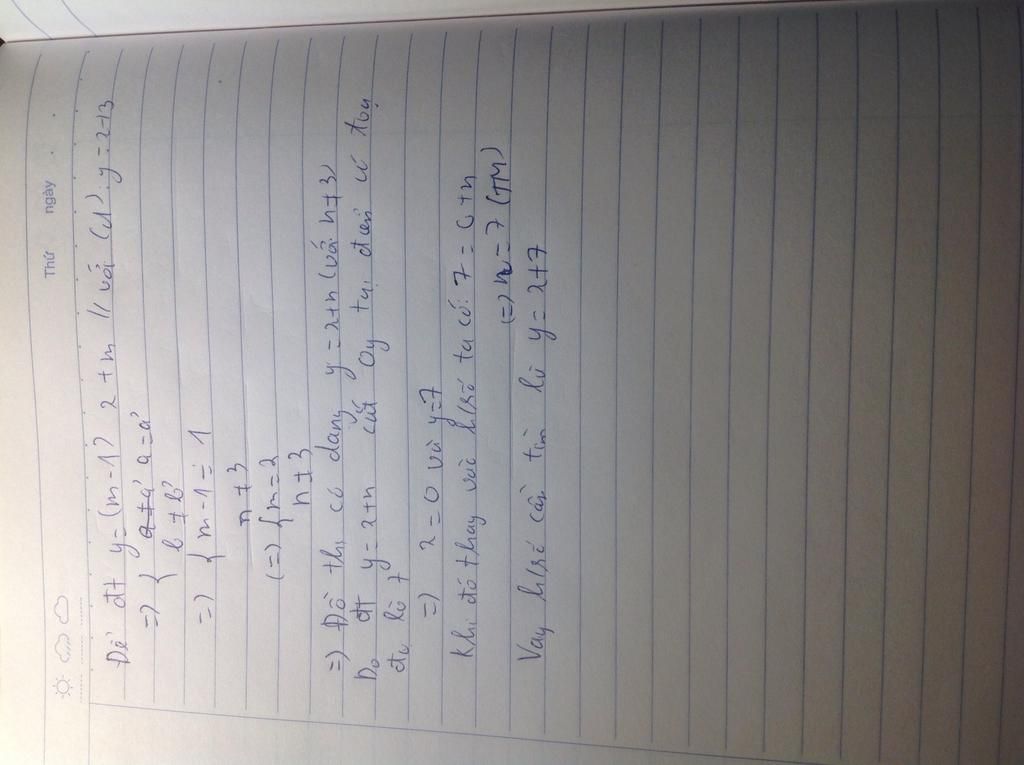 Thứ ngày
Để đt y=(m-1)x+m // với (d): y=x+3
=> { a=a'
b≠b'
=> { m-1=1
n≠3
(=) { m=2
n≠3
=> Đồ thị có dạng y=x+n (với n≠3)
Do đt y=x+n cắt Oy tại điểm có tđộ
là 7
=) x=0 và y=7
Khi đó thay vào h/số ta có: 7=0+n
(=) n=7 (TM)
Vay h/số cần tìm là y=x+7